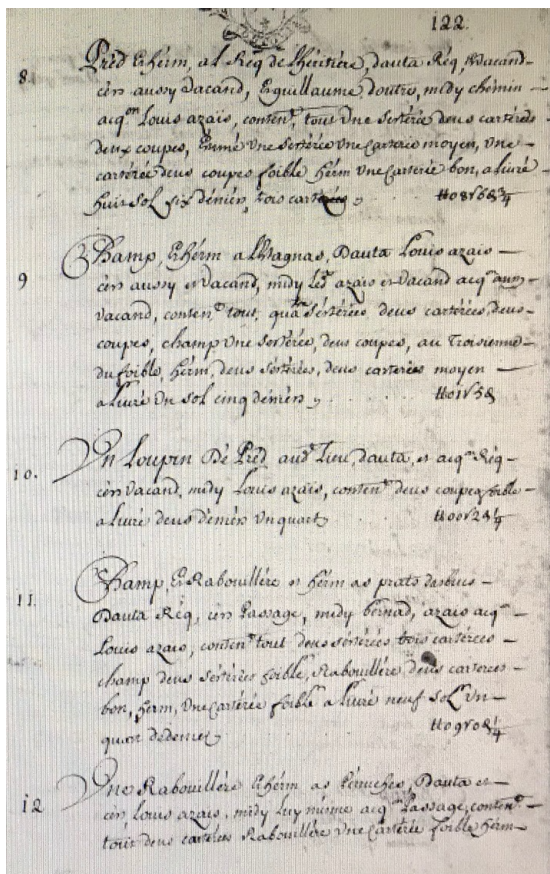 122.
8. Pred & herm, al Req de lheritiere, dauta Req, & vacand
cers aussy vacand, & guillaume doutre, midy chemin
acq.on Louis azais, conten.t tout Une sesterée deus carterées
deux coupes, Une sesterée Une carterée moyen, Une
carterée deus coupes foible herm Une carterée bon, alivré
huit sol six deniers, trois cartz ℔0s8d6¾
9 Champ, & herm a lMagnas, Dauta Louis azais
cers aussy et vacand, midy azais et vacand acq.on
vacand, conten.t tout, quatre sesterées, deus carterées, deus
coupes, champ Une sesterée, deus coupes, au Troisieme
du foible, herm, deus sesterées, deus carterées moyen
alivré Un sol cinq deniers ℔0s1d5
10. Un Loupin De Pred aud.t Lieu, dauta, et acq.on Req
cers vacand, midy Louis azais, conten.t deus coupes foible
alivré deus deniers Un quart ℔0s0d2¼
11. Champ, & Rabouillére et herm as prats
Dauta Req, cers Passage, midy bernad, azais acq.on
Louis azais, conten.t tout deus sesterées trois carterées
champ deus sesterées foible, Rabouillére deus carterées
bon, herm, Une carterée foible alivré neuf sol Un
quart dedenier ℔0s9d0¼
12 Une Rabouillére & herm as Dauta et
cers, louis azais, midy luy mime acq.on Passage, conten.t
tout deus carterées Rabouillére Une carterée foible herm